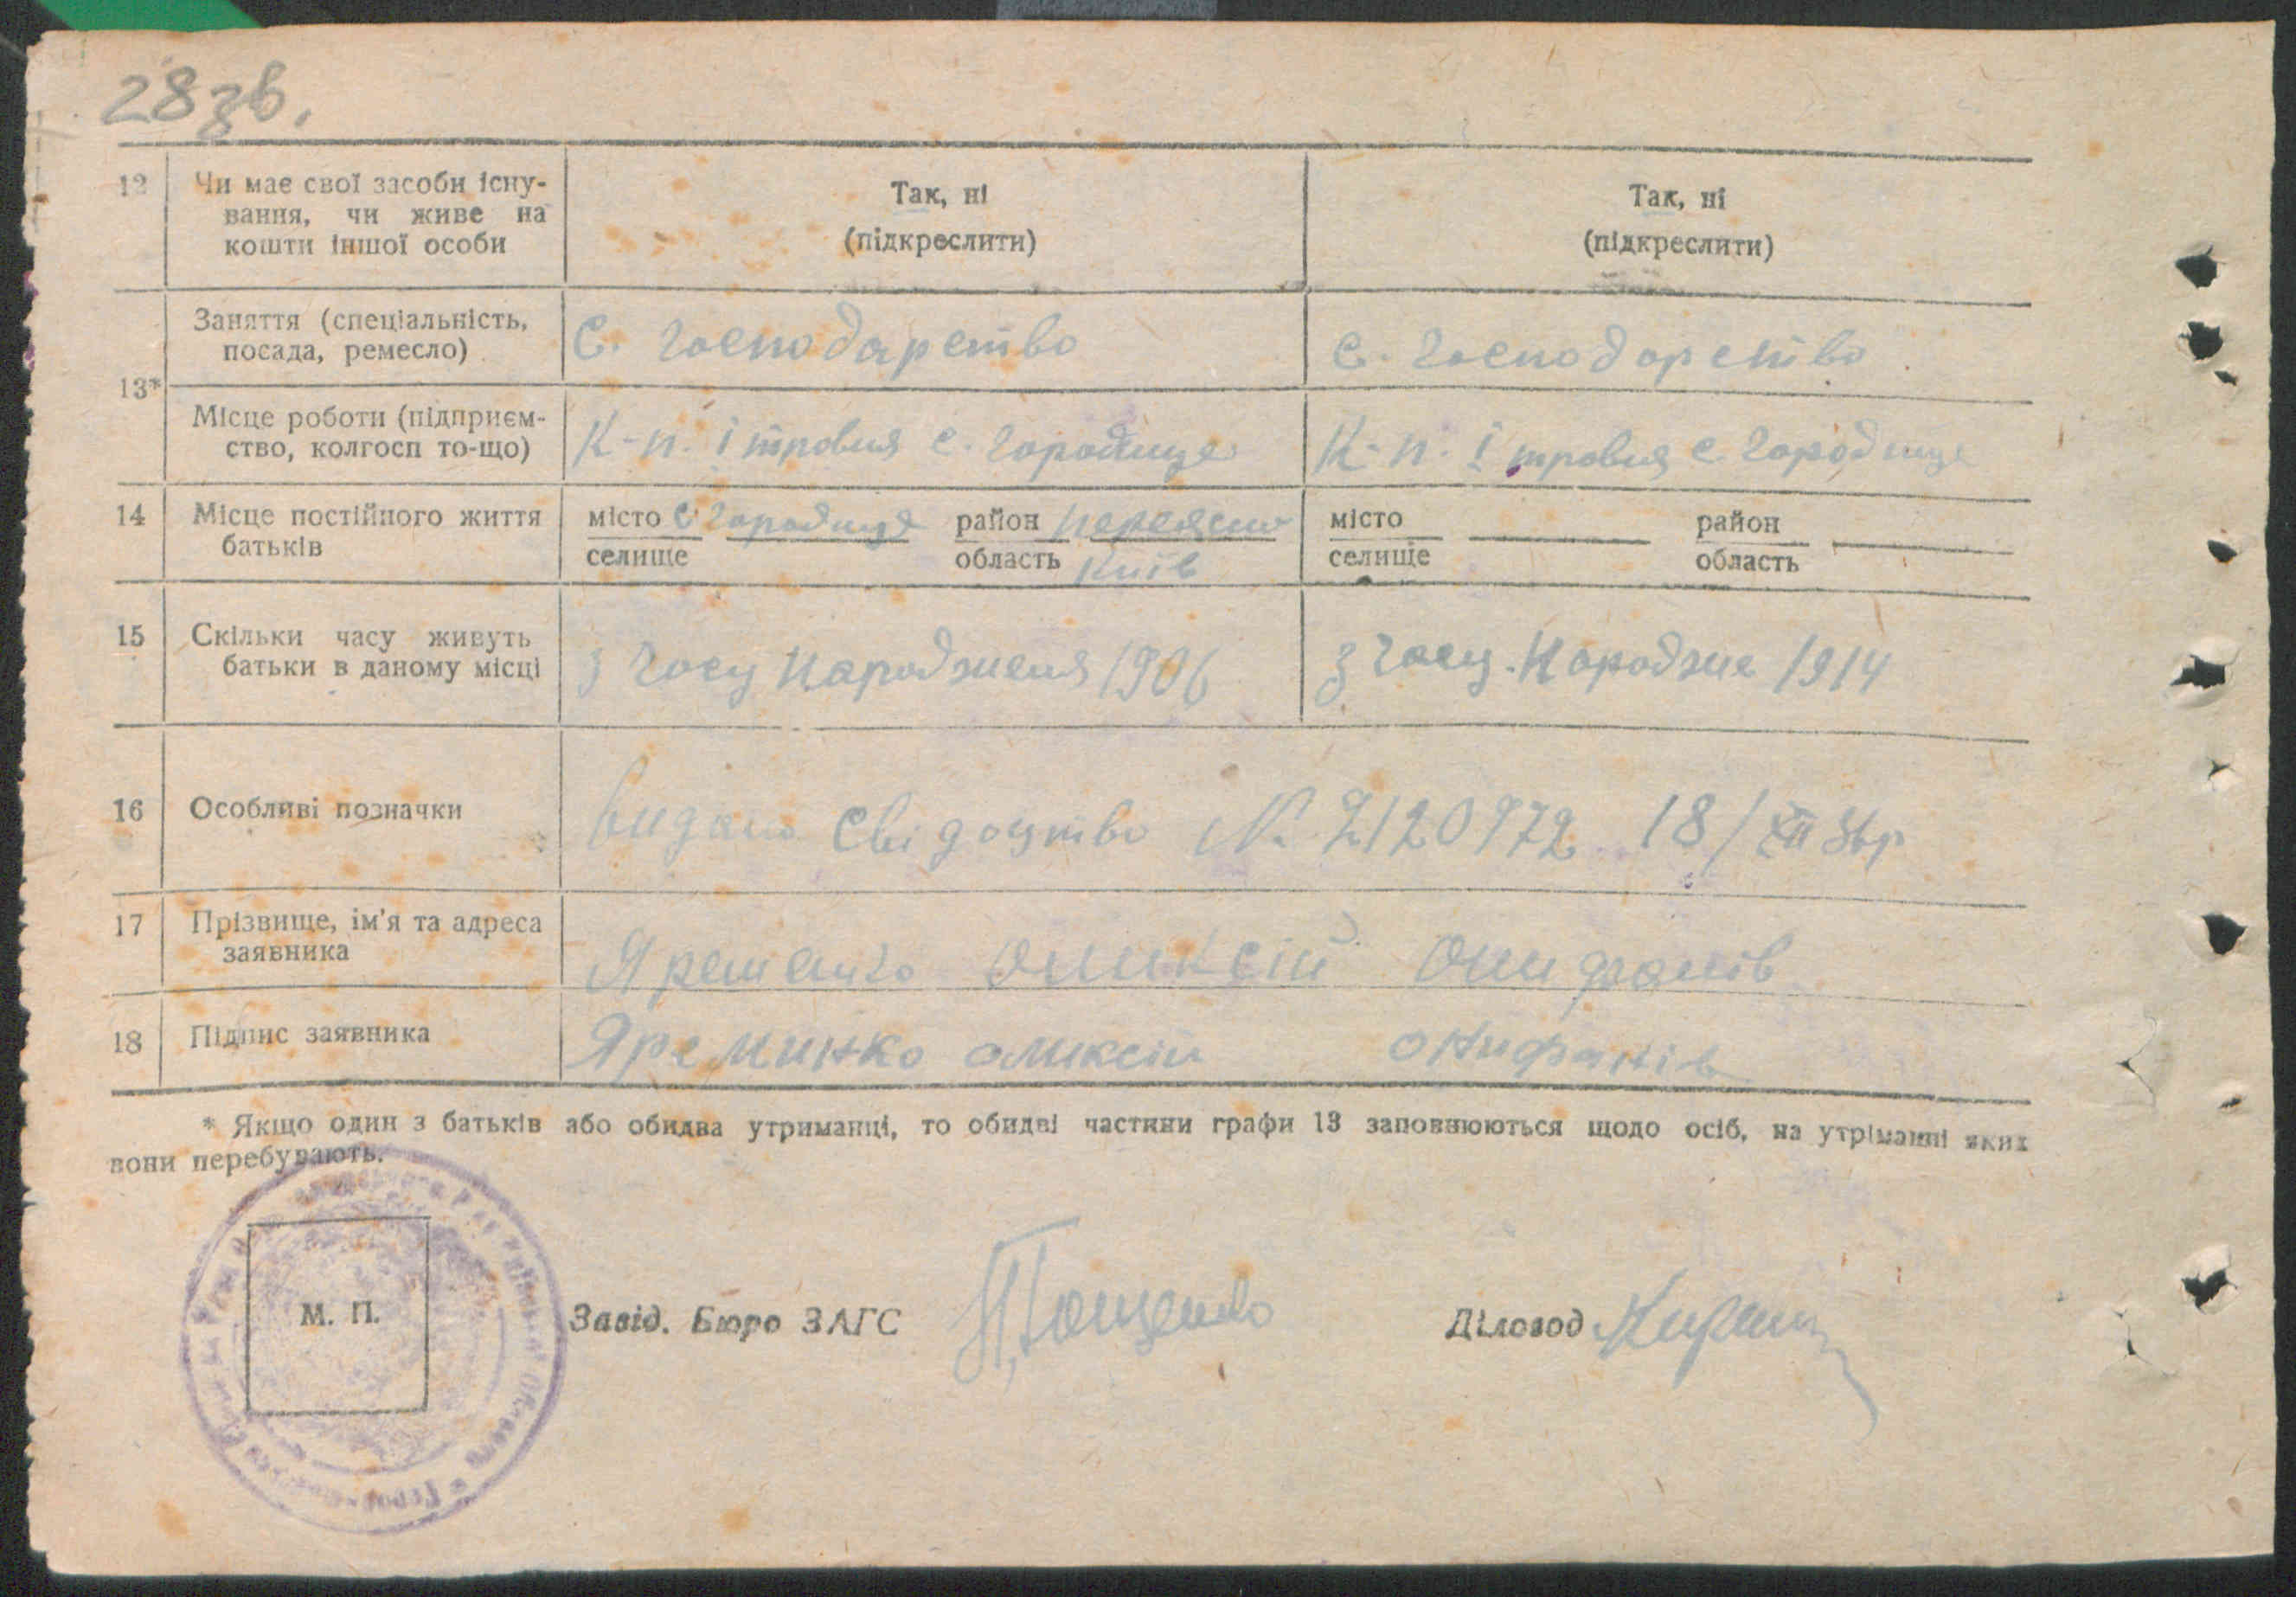 28 зв.
12 Чи має свої засоби існу-
вання, чи живе на
кошти іншої особи
Так, ні
(підкреслити)
Так, ні
(підкреслити)
13*
Заняття (спеціальність,
посада, ремесло)
С. господарство
с. господорство
Місце роботи (підприєм-
ство, колгосп то-що)
К-п. 1 травня с. городище
К-п. 1 травня с. городище
14 Місце постійного життя
батьків
місто с городище район переяслав
селище область Київ
місто район
селище область
15 Скільки часу живуть
батьки в даному місці
з часу народженя 1906
з часу народже 1914
16 Особливі позначки
видано свідоцтво № 2120972 18/XII
17 Прізвище, ім'я та адреса
заявника
Яременко Олексій Онифанів
18 Підпис заявника
Яреминко оликсій онифанів
* Якщо один з батьків або обидва утриманці, то обидві частини графи 13 заповнюються щодо осіб, на утріманні яких
вони перебувають.
М. П.
Завід. Бюро ЗАГС
Діловод